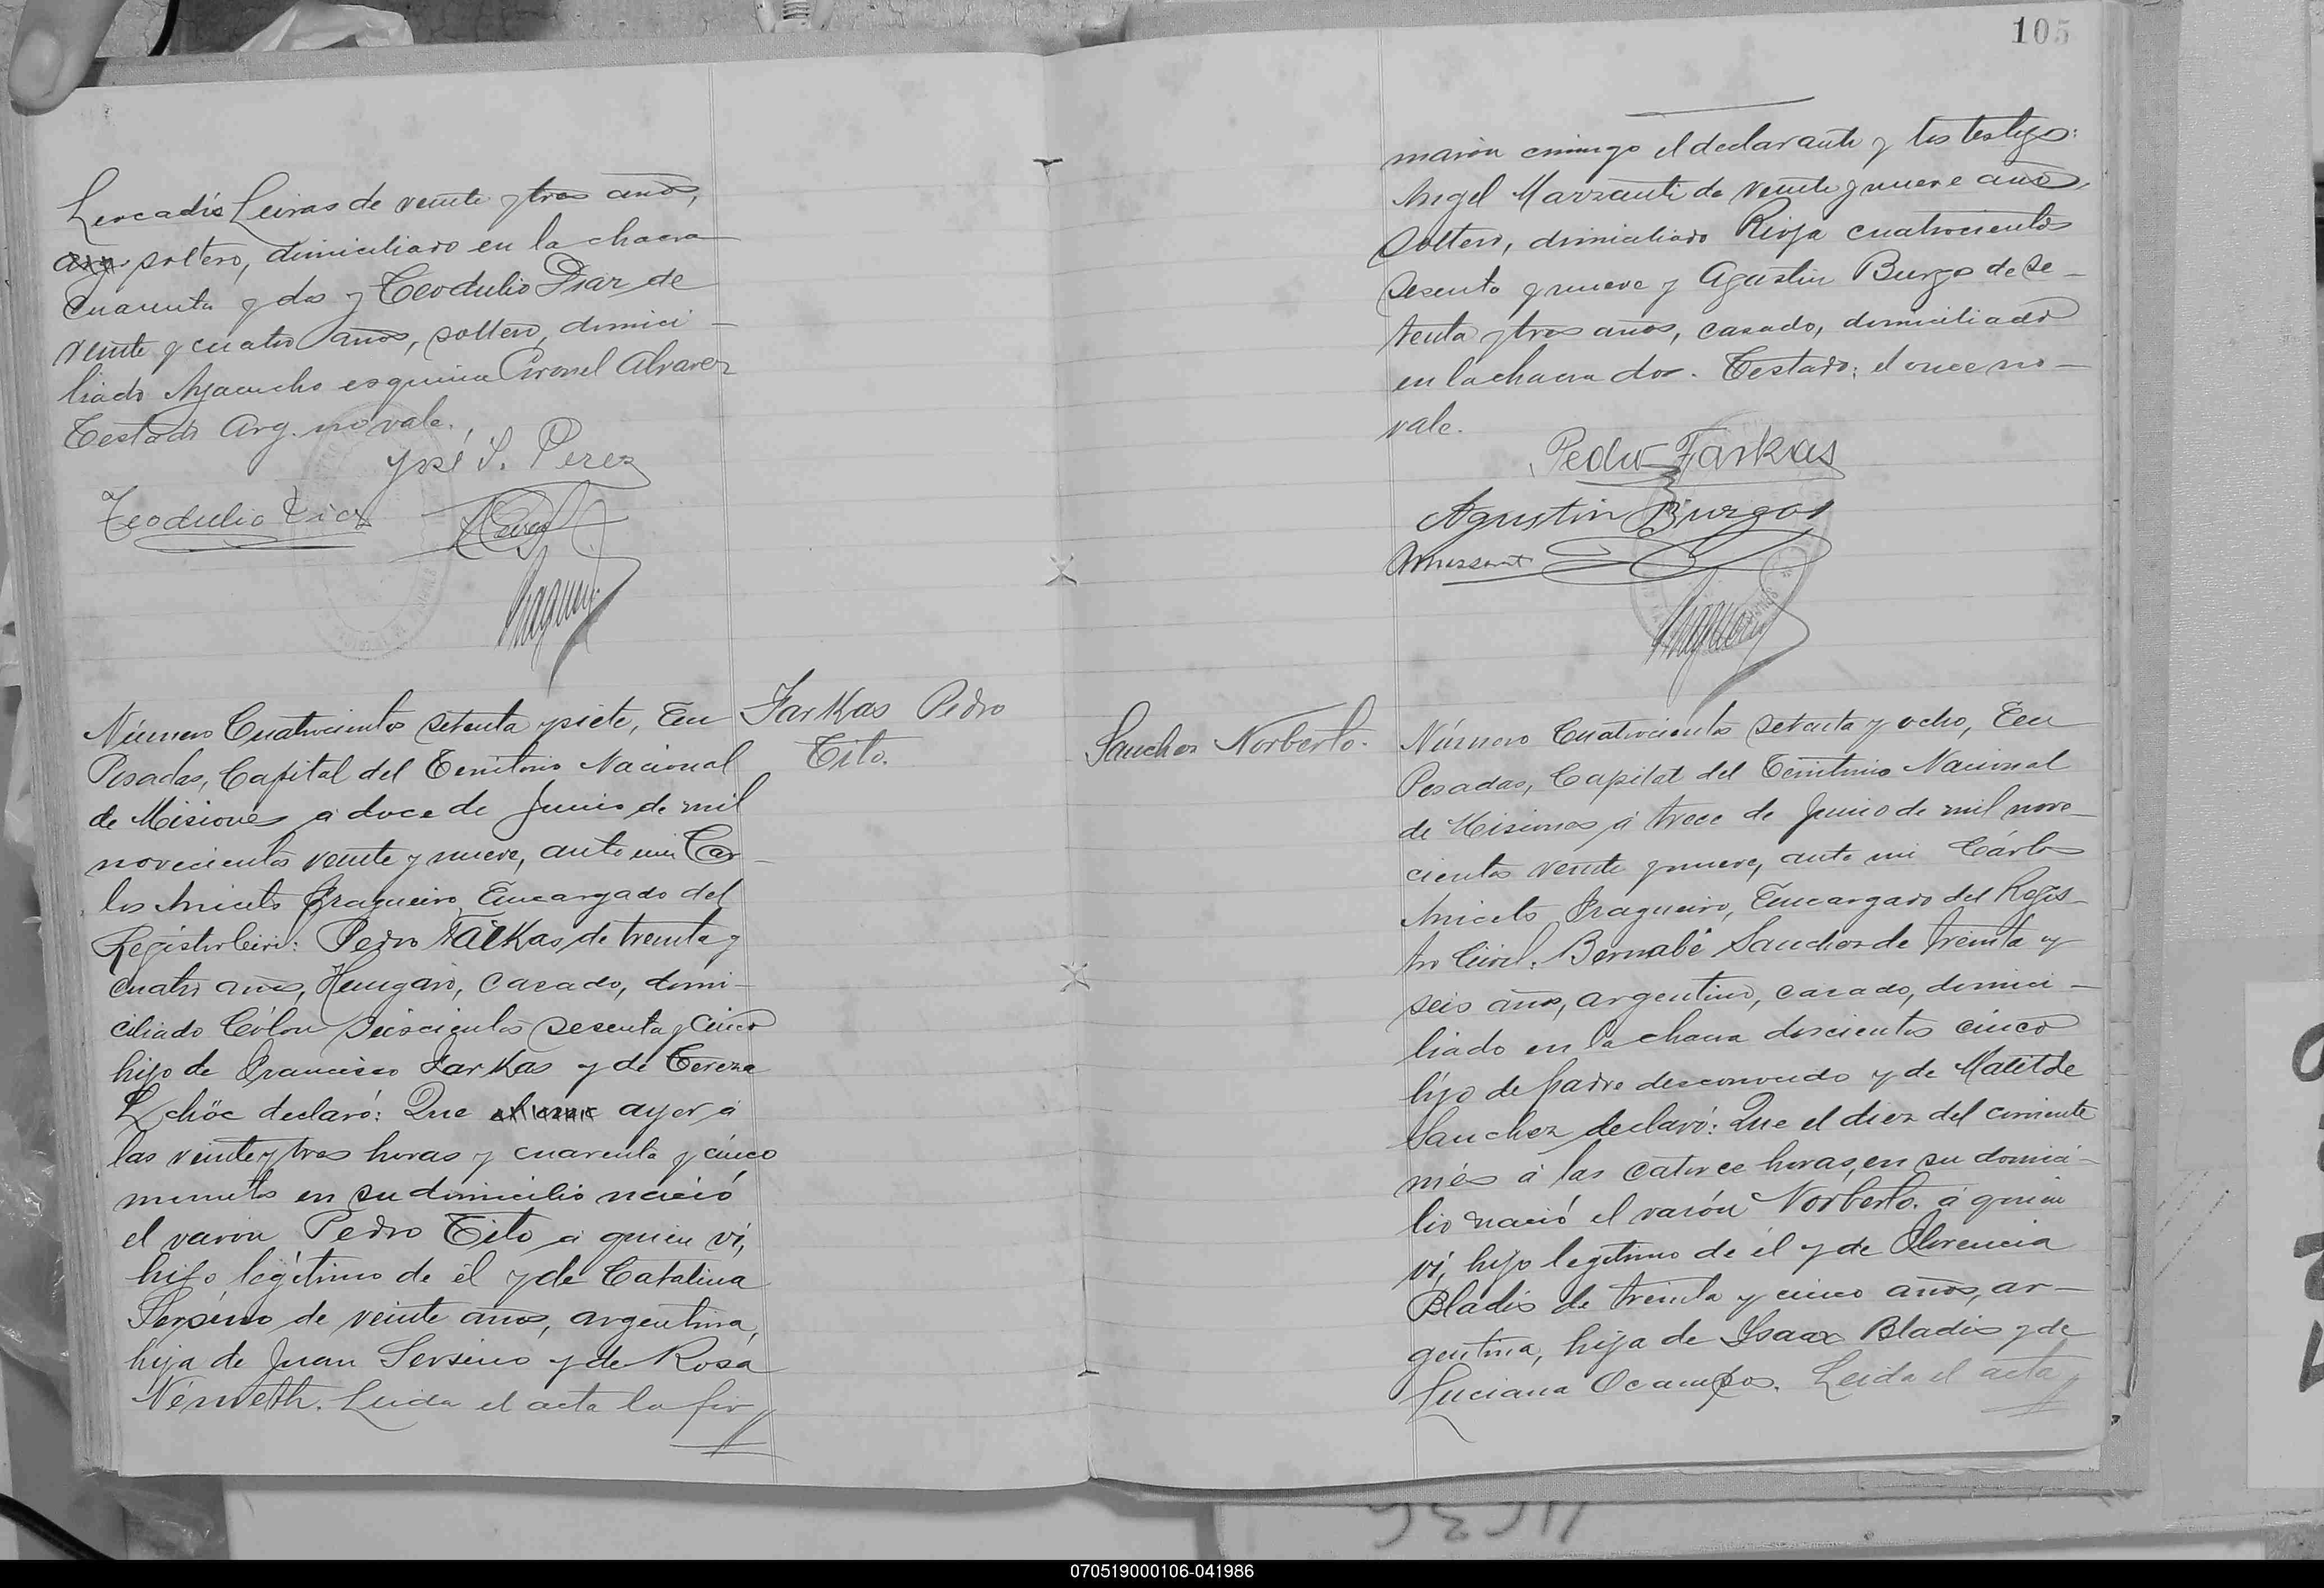 105
Leocadio Leivas de veinte y tres años,
arg. soltero, domiciliado en la chacra
cuarenta y dos y Teodulio Diaz de
veinte y cuatro años, soltero, domici-
liado Ayacucho esquina Coronel Alvarez
Testado Arg. no vale.
José S. Perez
Teodulio Diaz
Número Cuatrocientos setenta y siete, En
Posadas, Capital del Territorio Nacional
de Misiones á doce de Junio de mil
novecientos veinte y nueve, ante mi Car-
los Aniceto Fragueiro Encargado del
Registro Civil: Pedro Farkas de treinta y
cuatro años, Hungaro, casado, domi-
ciliado Cólon seiscientos sesenta y cinco
hijo de Francisco Farkas y de Tereza
declaró: Que el once ayer á
las veinte y tres horas y cuarenta y cinco
minutos en su domicilio nació
el varon Pedro Tito á quien ví,
hijo legítimo de él y de Catalina
Sersino de veinte años, argentina,
hija de Juan Sersino y de Rosa
Németh. Leida el acta la fir
Farkas Pedro
Tito.
maron conmigo el declarante y los testigos:
Angel Marzanti de veinte y nueve años,
soltero, domiciliado Rioja cuatrocientos
sesenta y nueve y Agustin Burgos de se-
tenta y tres años, casado, domiciliado
en la chacra dos. Testado: el once no-
vale.
Pedro Farkas
Agustin Burgos
Sanchez Norberto.
Número Cuatrocientos setenta y ocho, En
Posadas, Capital del Territorio Nacional
de Misiones á trece de Junio de mil nove-
cientos veinte y nueve, ante mi Cárlos
Aniceto Fragueiro, Encargado del Regis-
tro Civil. Bernabé Sanchez de treinta y
seis años, argentino, casado, domici-
liado en la chacra doscientos cinco
hijo de padre desconocido y de Matilde
Sanchez declaró: Que el diez del corriente
més á las catorce horas, en su domici-
lio nació el varón Norberto. á quien
ví, hijo legítimo de él y de Florencia
Bladis de treinta y cinco años, ar-
gentina, hija de Ysaax Bladis y de
Luciana Ocampos. Leida el acta
070519000106-041986